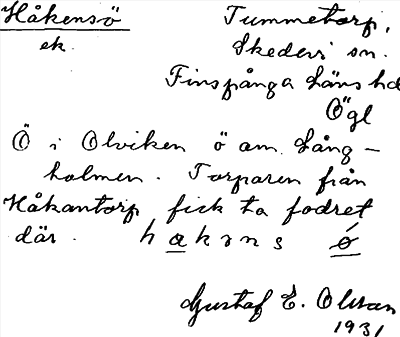 Håkensö Tummetorp,
ek. Skedevi sn.
Finspånga läns hd
Ögl
Ö i Olviken ö om Lång-
holmen. Torparen från
Håkantorp fick ta fodret
där. hakəns ǿ
Gustaf E. Olsson
1931